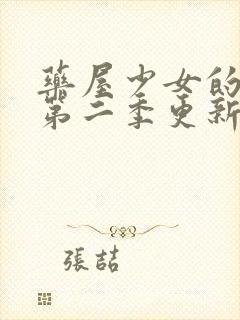 藥屋少女的
第二季更新
張喆